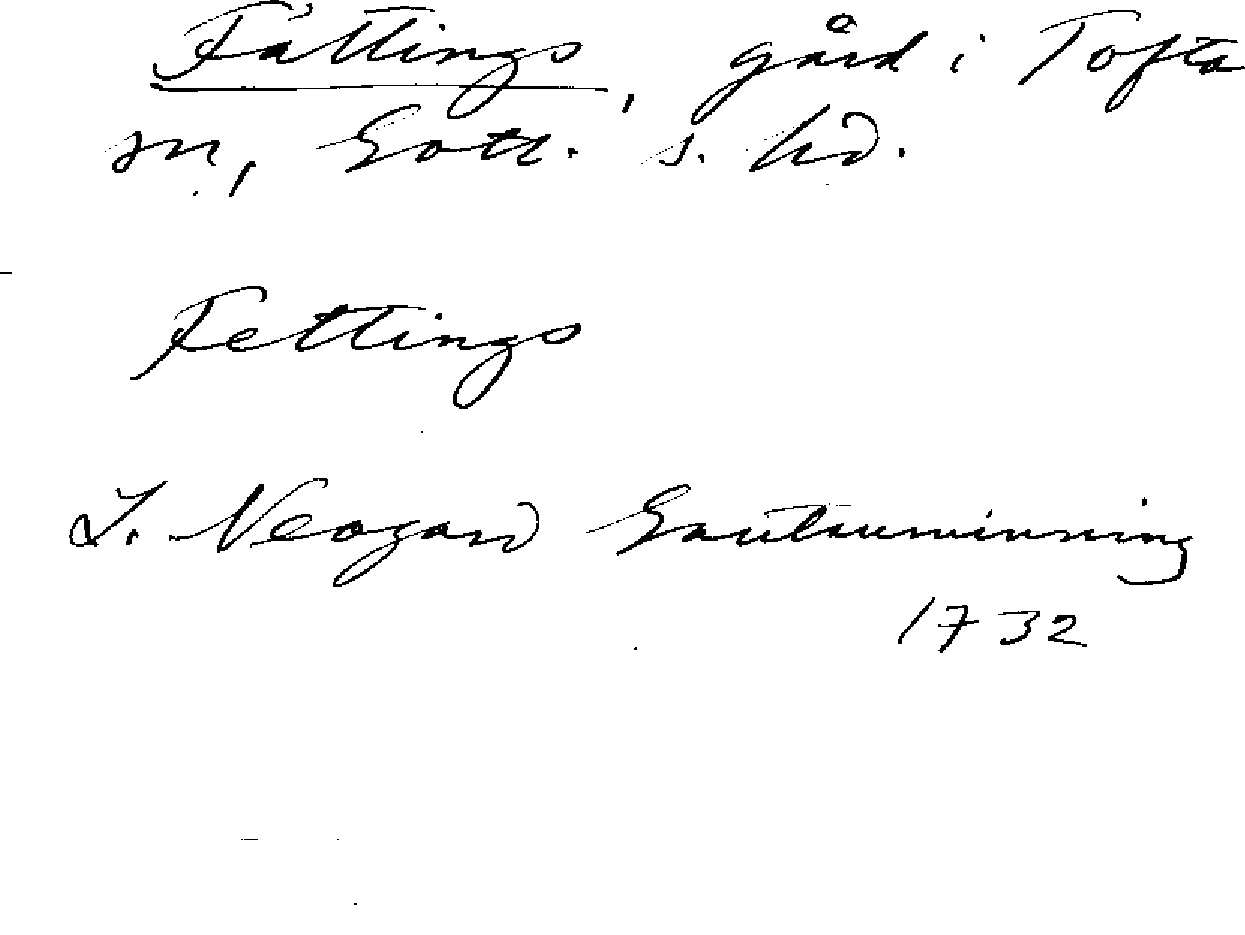 Fättings, gård i Tofta
sn, Gotl. s. hd.
Fettings
J. Neogard Gautauminning
1732